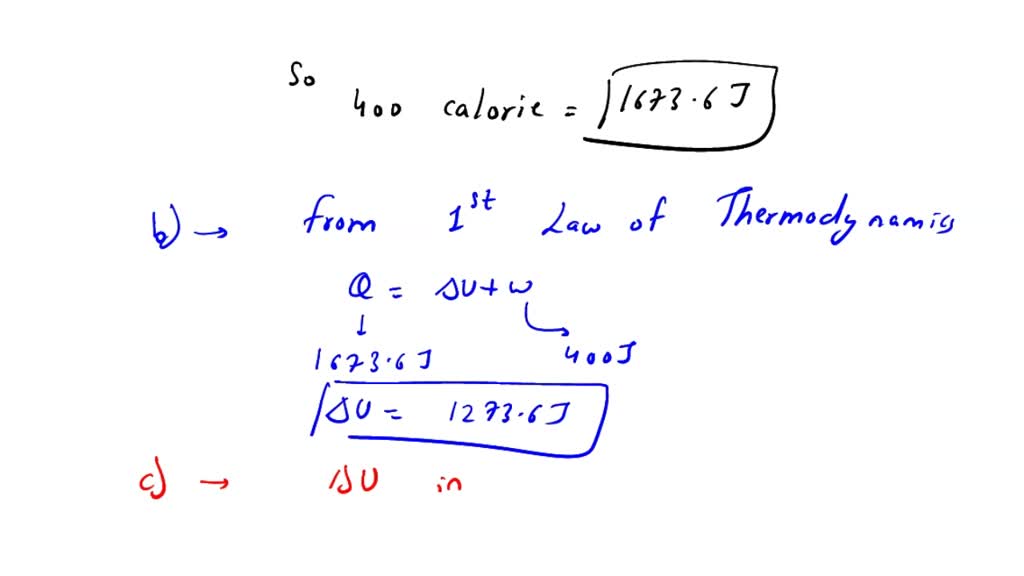 So
400 calorie = 1673.6 J
b) → from 1st Law of Thermodynamics
Q = ΔU + w
↓
1673.6 J 400J
ΔU = 1273.6J
c) → ΔU in